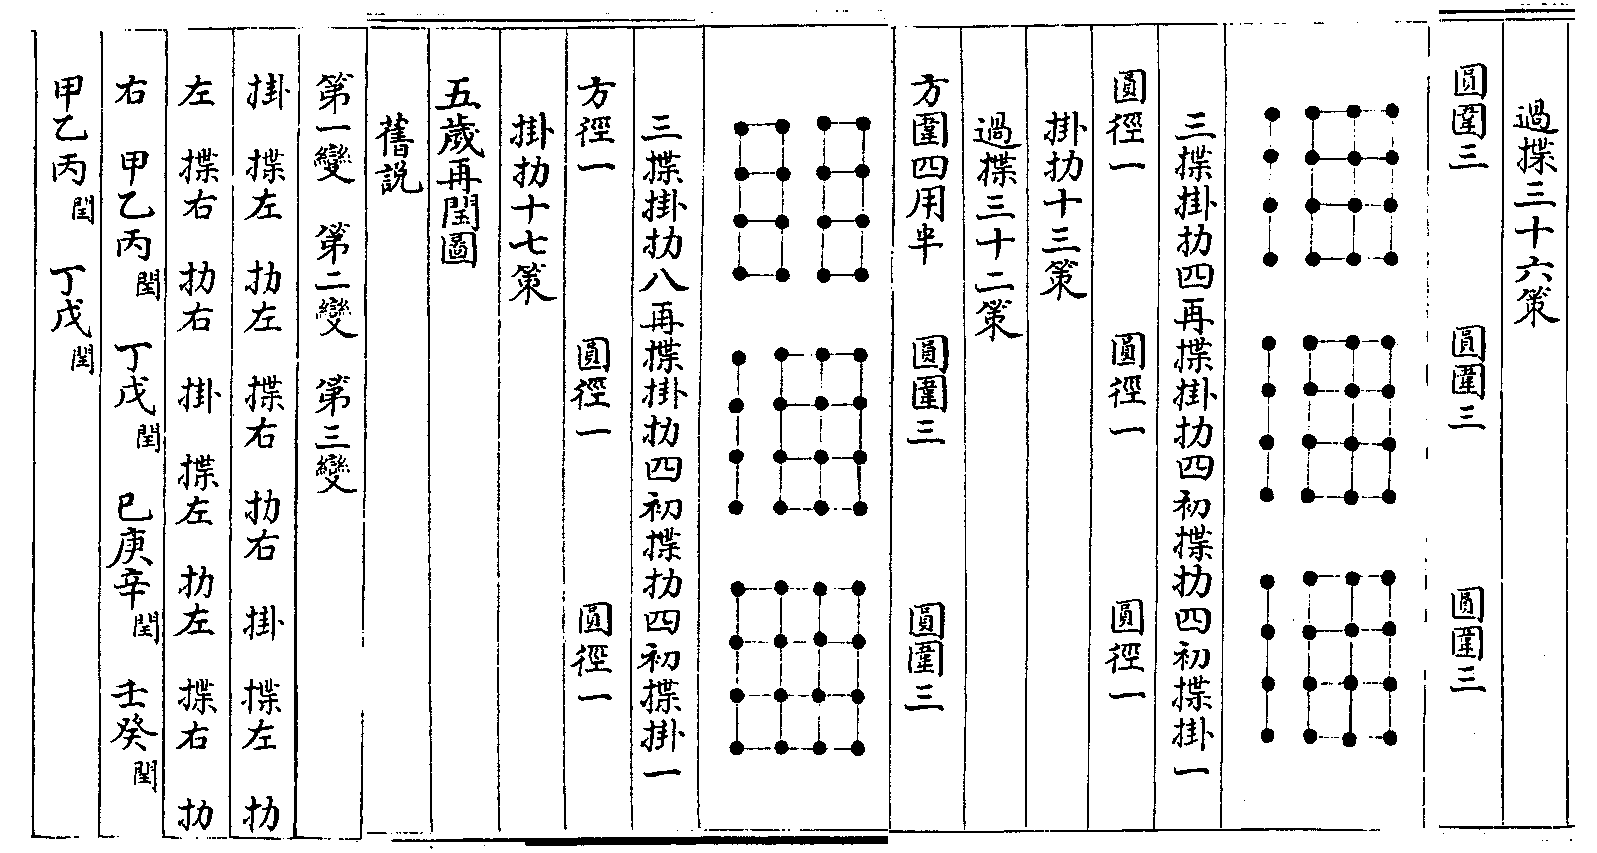 過揲三十六策
圓圍三 圓圍三 圓圍三
三揲掛扐四再揲掛扐四初揲扐四初揲掛一
圓徑一 圓徑一 圓徑一
掛扐十三策
過揲三十二策
方圍四用半 圓圍三 圓圍三
三揲掛扐八再揲掛扐四初揲扐四初揲掛一
方徑一 圓徑一 圓徑一
掛扐十七策
五歲再閏圖
舊説
第一變 第二變 第三變
掛 揲左 扐左 揲右 扐右 掛 揲左 扐
左 揲右 扐右 掛 揲左 扐左 揲右 扐
右 甲乙丙閏 丁戊閏 巳庚辛閏 壬癸閏
甲乙丙閏 丁戊閏